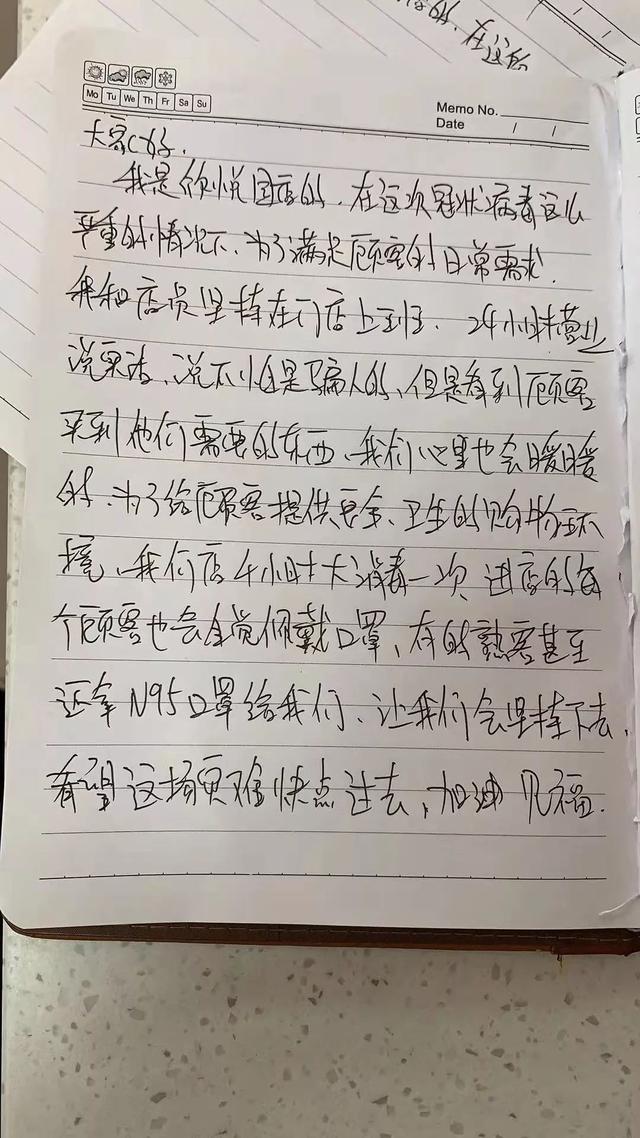 的、在这的
Memo No.
Mo Tu We Th Fr Sa Su
Date / /
大家心好.
我是你悦国店的、在这次冠状病毒这么
严重的情况下、为了满足顾客的日常需求.
我和店员坚持在门店上班、24小时营业
说实话、说不怕是骗人的、但是看到顾客
买到他们需要的东西、我们心里也会暖暖
的、为了给顾客提供安全、卫生的购物环
境、我们店4小时大消毒一次、进店的每
个顾客也会自觉佩戴口罩、有的熟客甚至
还拿N95口罩给我们、让我们会坚持下去、
希望这场灾难快点过去、加油 几福.